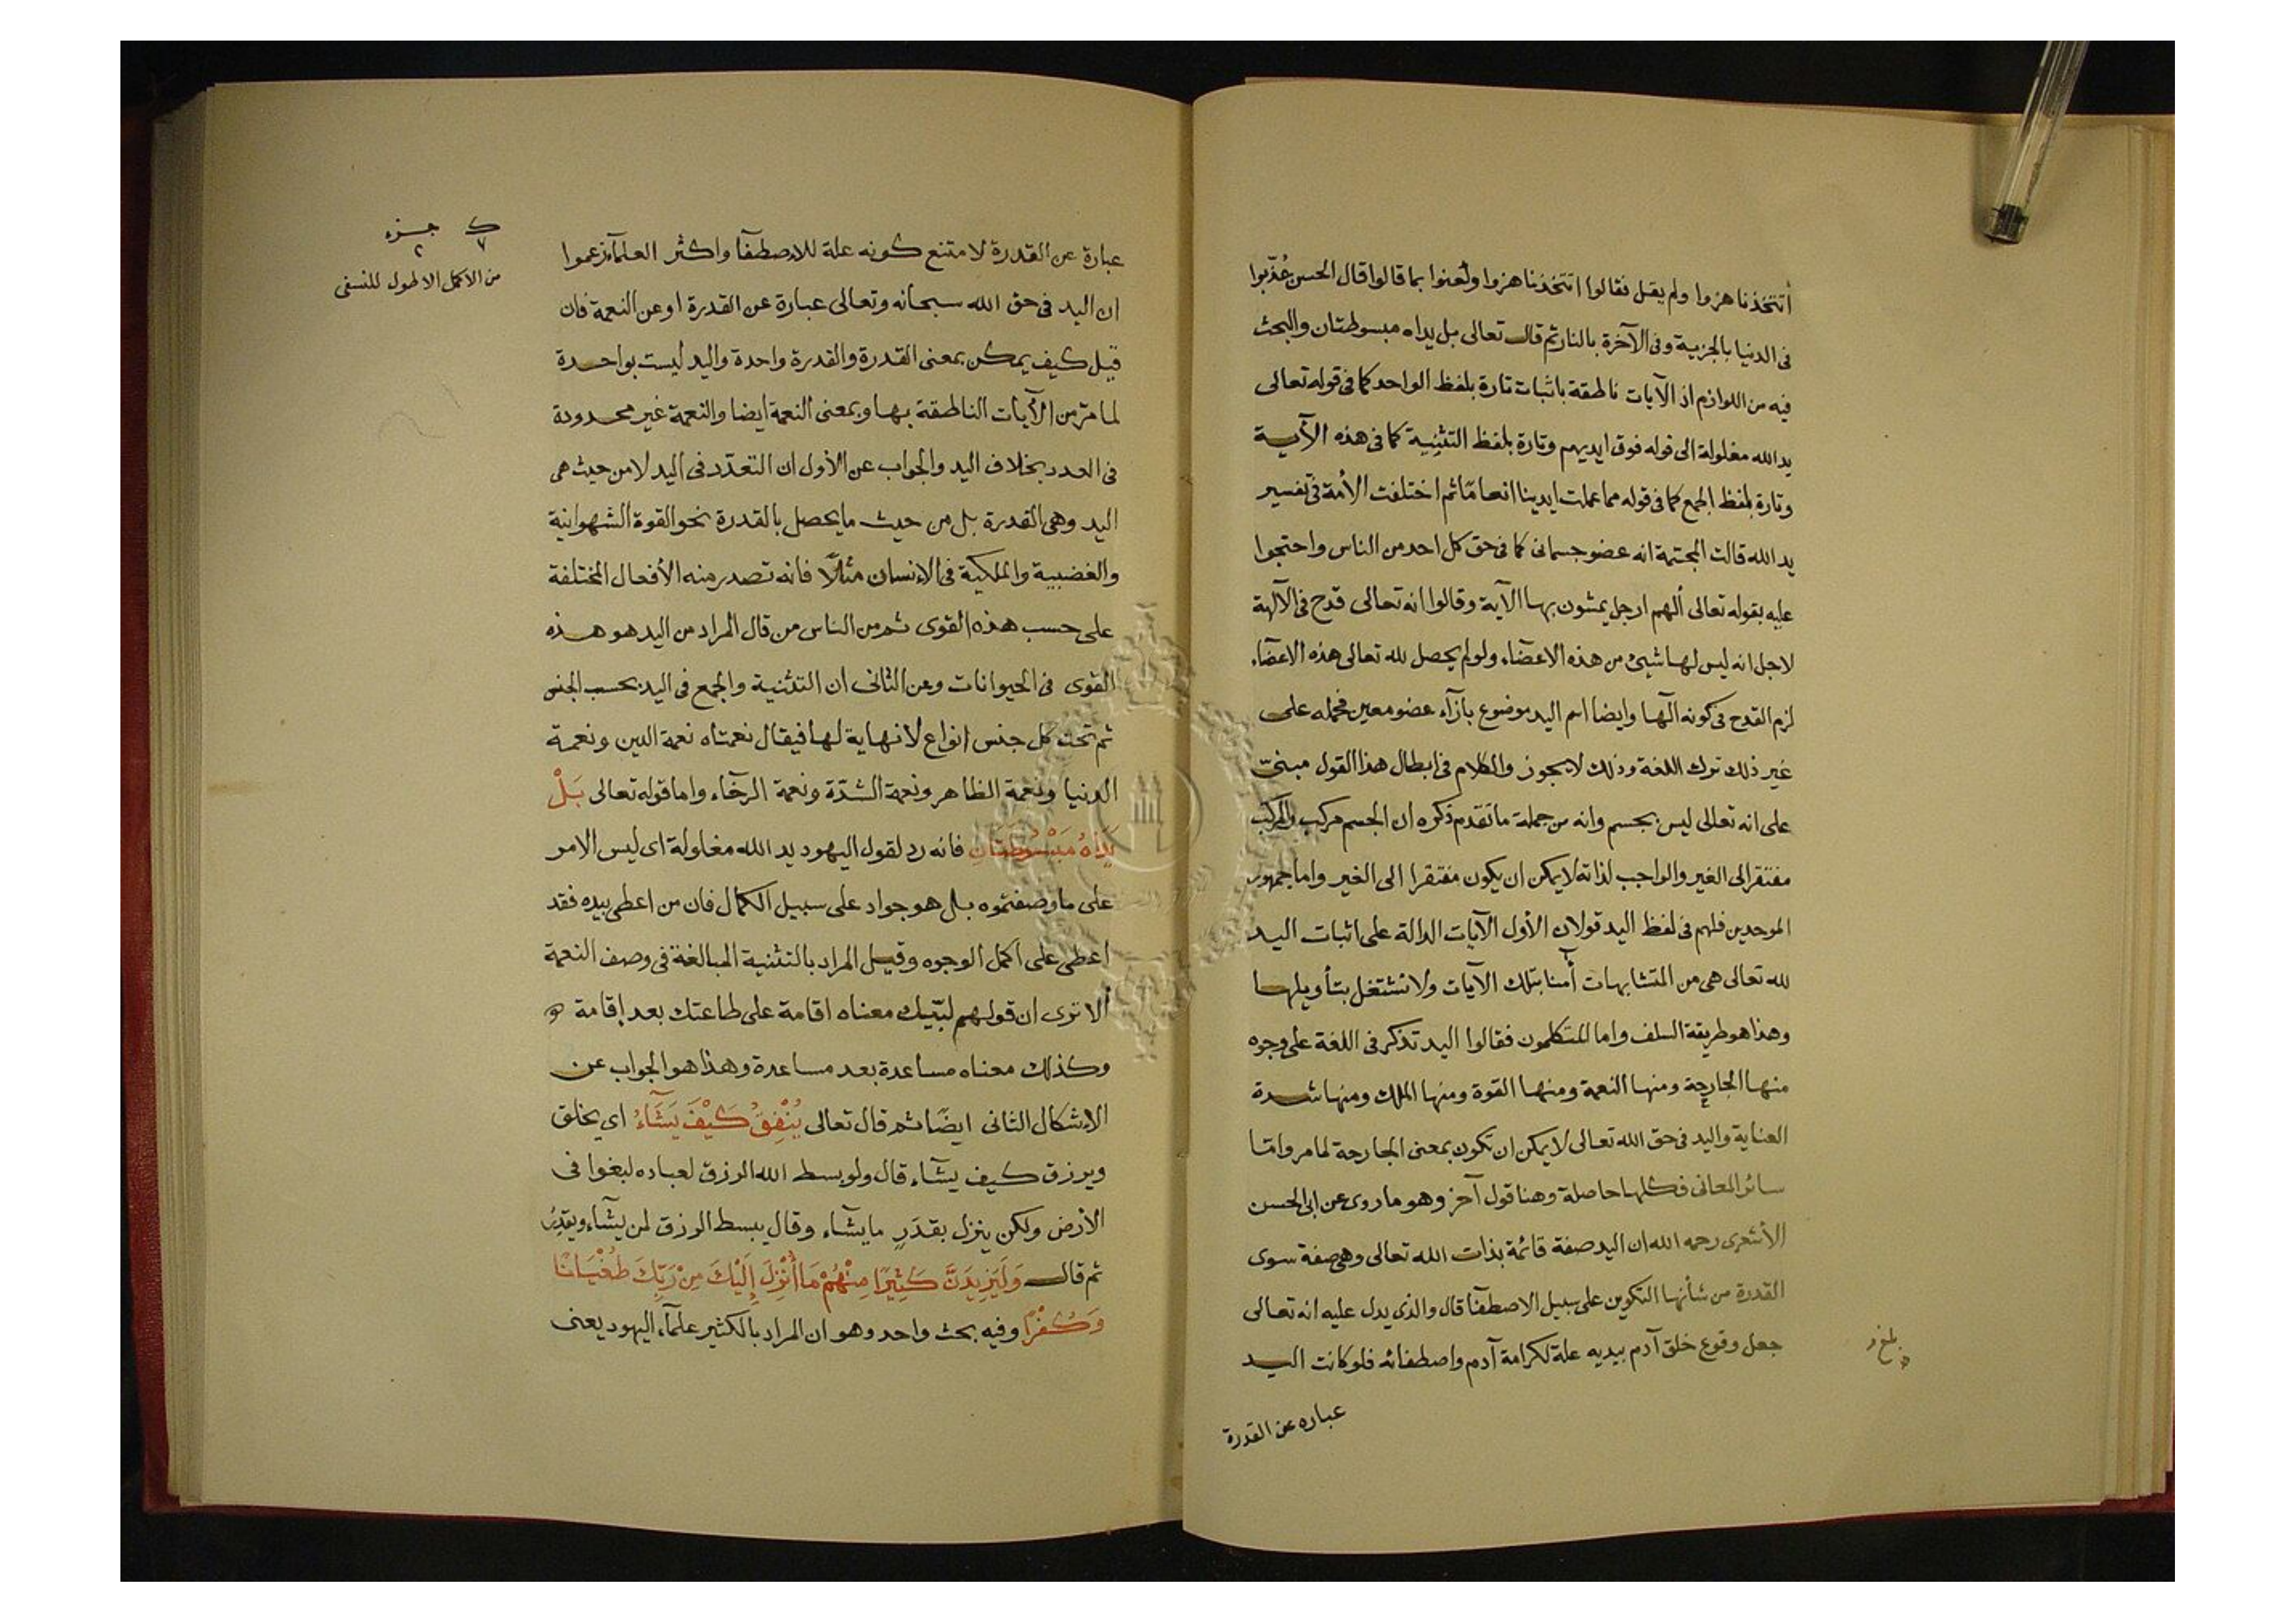 أتتخذنا هزوا ولم يقل فقالوا اتتخذنا هزوا ولعنوا بما قالوا قال الحسن عُذّبوا
فى الدنيا بالجزية وفى الآخرة بالنار ثم قال تعالى بل يداه مبسوطتان والبحث
فيه من اللوازم اذ الآيات ناطقة باثبات تارة بلفظ الواحد كما فى قوله تعالى
يد الله مغلولة الى قوله فوق ايديهم وتارة بلفظ التثنية كما فى هذه الآية
وتارة بلفظ الجمع كما فى قوله مما عملت ايدينا انعامًا ثم اختلفت الأمة فى تفسير
يد الله قالت المجسمة انه عضو جسمانى كما فى حق كل احد من الناس واحتجوا
عليه بقوله تعالى ألهم ارجل يمشون بها الآية وقالوا انه تعالى قدح فى الآلهة
لاجل انه ليس لها شيئ من هذه الاعضآء ولو لم يحصل لله تعالى هذه الاعضآء
لزم القدح فى كونه آلها وايضا اسم اليد موضوع بازآء عضو معين فحمله على
غير ذلك ترك اللغة وذلك لا يجوز والكلام فى ابطال هذا القول مبنىّ
على انه تعالى ليس بجسم وانه من جملة ما تقدم ذكره ان الجسم مركب والمركب
مفتقر الى الغير والواجب لذاته لا يمكن ان يكون مفتقرا الى الغير واما جمهور
الموحدين فلهم فى لفظ اليد قولان الأول الآيات الدالة على اثبات اليد
لله تعالى هى من المتشابهات آمنا بتلك الآيات ولا نشتغل بتأويلها
وهذا هو طريقة السلف واما المتكلمون فقالوا اليد تذكر فى اللغة على وجوه
منها الجارحة ومنها النعمة ومنها القوة ومنها الملك ومنها شدة
العناية واليد فى حق الله تعالى لا يمكن ان تكون بمعنى الجارحة لما مر وامّا
سائر المعانى فكلها حاصلة وهنا قول آخر وهو ما روى عن ابى الحسن
الأشعرى رحمه الله ان اليد صفة قائمة بذات الله تعالى وهى صفة سوى
القدرة من شأنها التكوين على سبيل الاصطفآ قال والذى يدل عليه انه تعالى
جعل وقوع خلق آدم بيديه علة لكرامة آدم واصطفائه فلو كانت اليد
عباره عن القدرة
ك جزء
٧ ٢
من الاكمل الاطول للنسفى
عبارة عن القدرة لامتنع كونه علة للاصطفآ واكثر العلمآء زعموا
ان اليد فى حق الله سبحانه وتعالى عبارة عن القدرة او عن النعمة فان
قيل كيف يمكن بمعنى القدرة والقدرة واحدة واليد ليست بواحدة
لما مرّ من الآيات الناطقة بها وبمعنى النعمة ايضا والنعمة غير محدودة
فى العدد بخلاف اليد والجواب عن الأول ان التعدّد فى اليد لا من حيث هى
اليد وهى القدرة بل من حيث ما يحصل بالقدرة نحو القوة الشهوانية
والغضبية والملكية فى الانسان مثلًا فانه تصدر منه الأفعال المختلفة
على حسب هذه القوى ثم من الناس من قال المراد من اليد هو هذه
القوى فى الحيوانات وعن الثانى ان التثنية والجمع فى اليد بحسب الجنس
ثم تحت كل جنس انواع لا نهاية لها فيقال نعمتاه نعمة الدين ونعمة
الدنيا ونعمة الظاهر ونعمة الشدّة ونعمة الرخآء واما قوله تعالى بَلْ
يَدَاهُ مَبْسُوطَتَانِ فانه رد لقول اليهود يد الله مغلولة اى ليس الامر
على ما وصفتموه بل هو جواد على سبيل الكمال فان من اعطى بيده فقد
اعطى على اكمل الوجوه وقيل المراد بالتثنية المبالغة فى وصف النعمة
ألا ترى ان قولهم لبّيك معناه اقامة على طاعتك بعد إقامة
وكذلك معناه مساعدة بعد مساعدة وهذا هو الجواب عن
الاشكال الثانى ايضًا ثم قال تعالى يُنْفِقُ كَيْفَ يَشَآءُ اى يخلق
ويرزق كيف يشآء قال ولو بسط الله الرزق لعباده لبغوا فى
الأرض ولكن ينزل بقدَرٍ ما يشآء وقال يبسط الرزق لمن يشآء ويقدِرُ
ثم قال وَلَيَزِيدَنَّ كَثِيرًا مِنْهُمْ مَا أُنْزِلَ إِلَيْكَ مِنْ رَبِّكَ طُغْيَانًا
وَكُفْرًا وفيه بحث واحد وهو ان المراد بالكثير علمآء اليهود يعنى